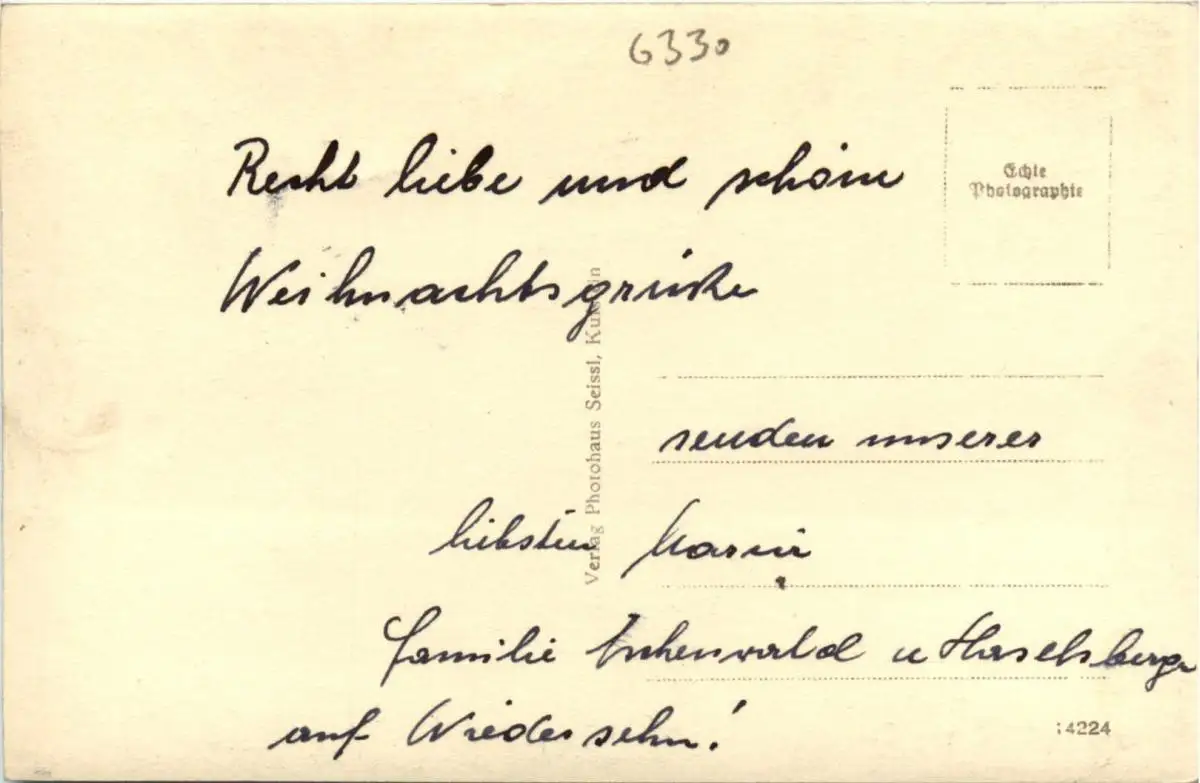 6330
Recht liebe und schöne
Echte
Photographie
Weihnachtsgrüße
Verlag Photohaus Seissl, Kufstein
senden unserer
liebsten Marie
Familie u Haselsberger
auf Wiedersehn!
14224